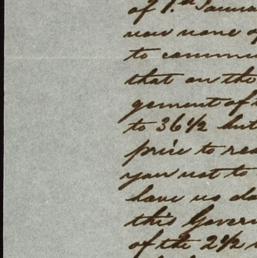 of 1st Janua
now none o
to commu
that on the
gement of
to 36 1/2 but
price to re
you not to
have us do
this Gover
of the 2 1/2